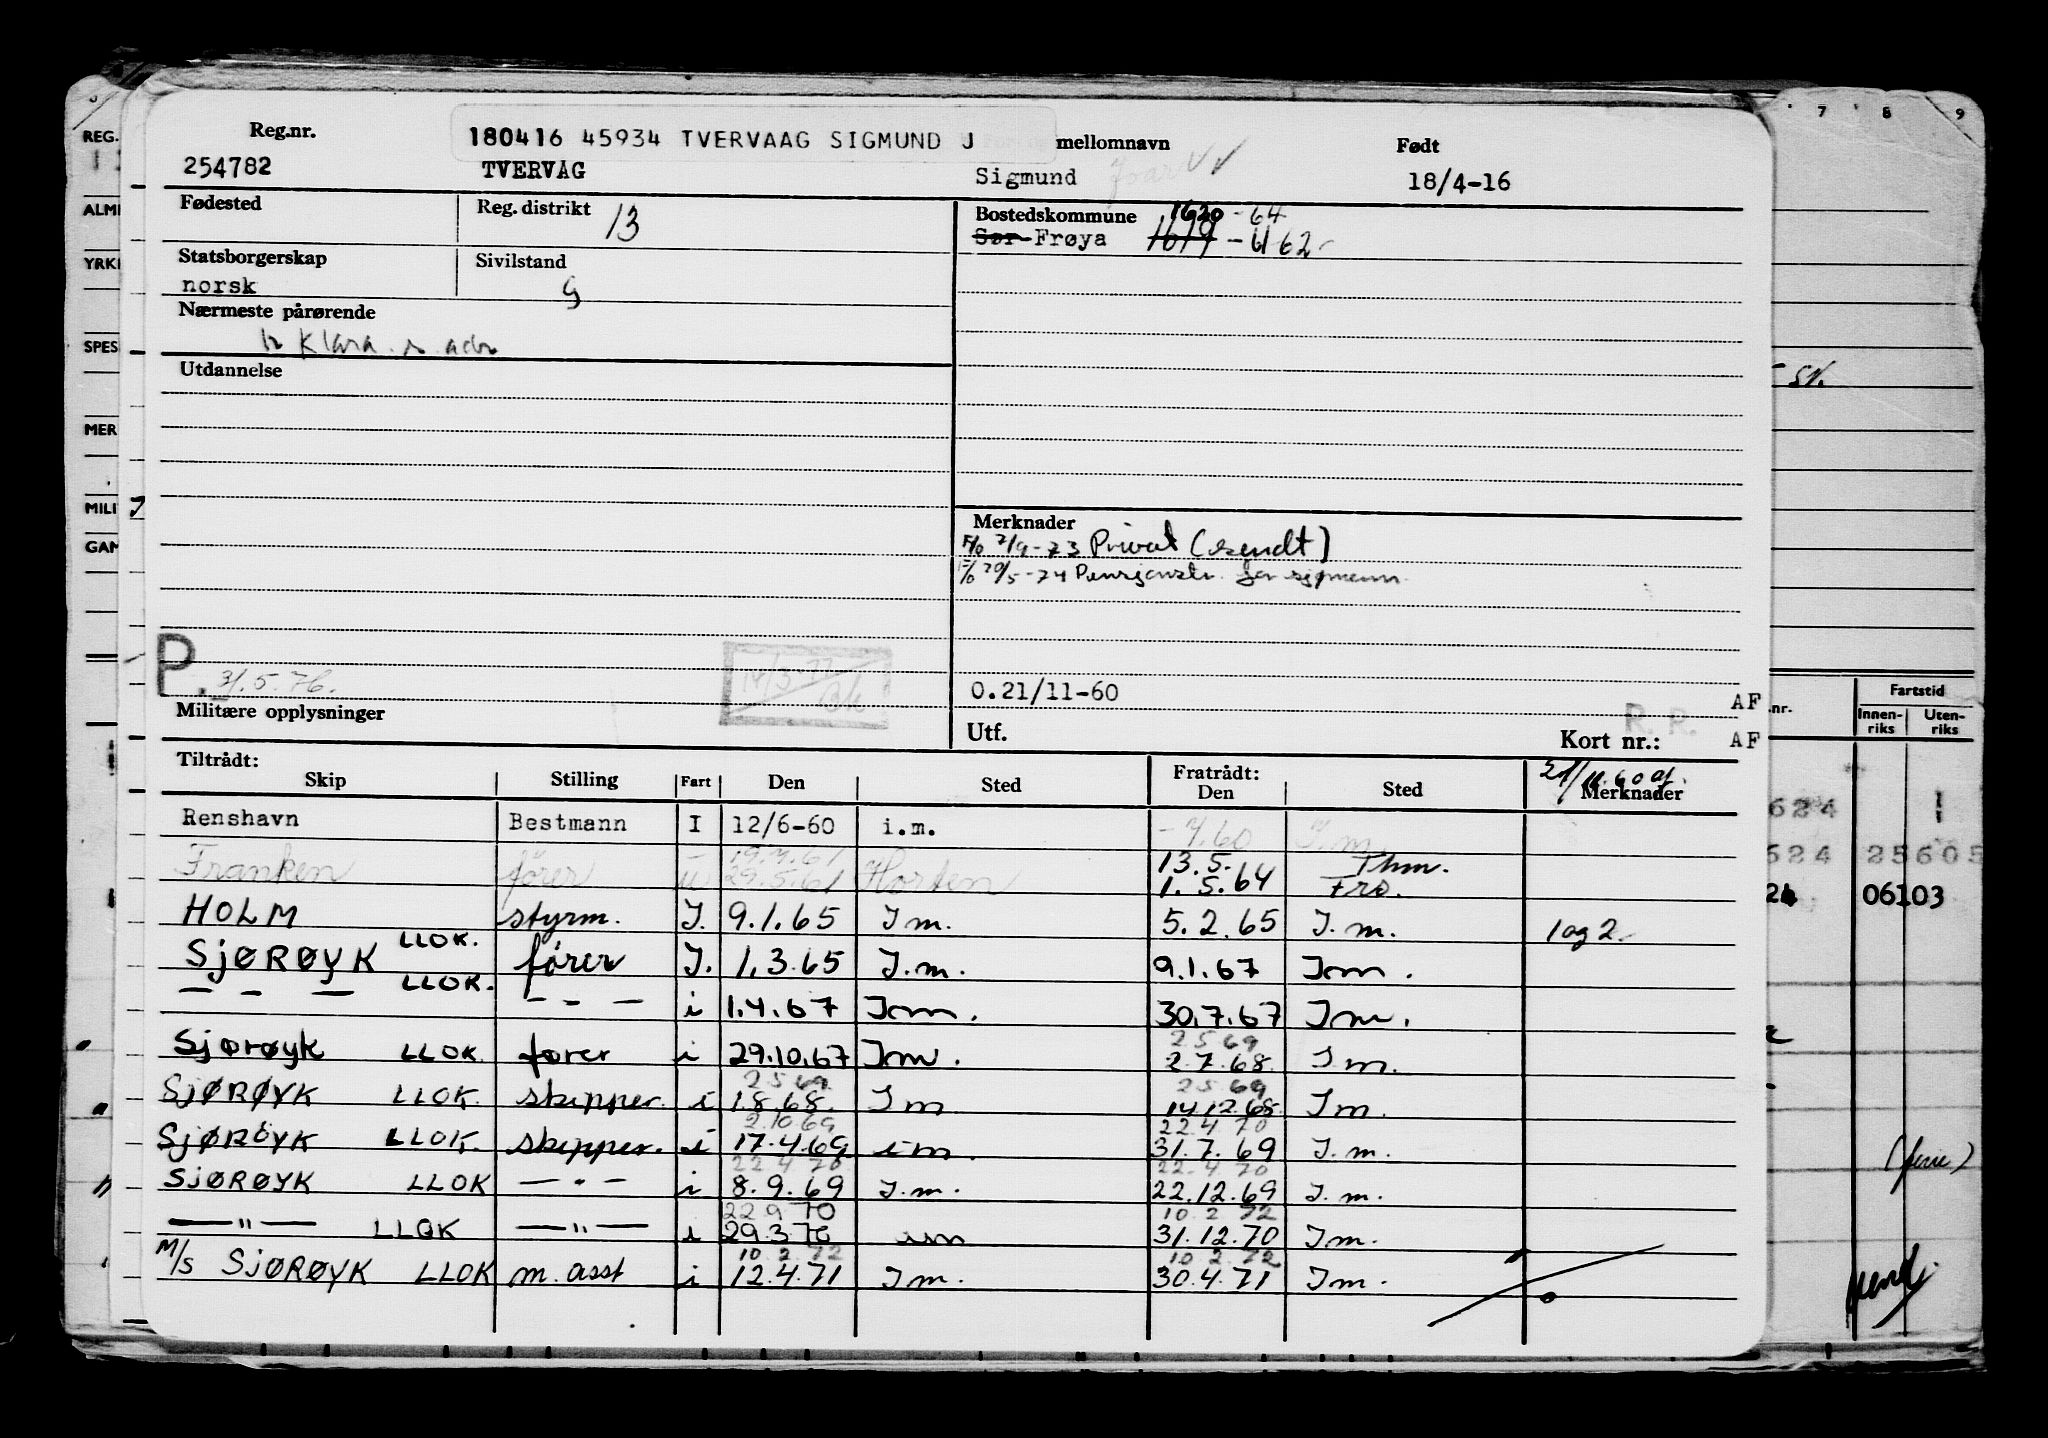 Reg.nr. 180416 45934 TVERVAAG SIGMUND J mellomnavn Født
254782 TVERVÅG Sigmund Joar 18/4-16
Fødested Reg. distrikt 13 Bostedskommune 1620 - 64
Sør-Frøya 1619
Statsborgerskap Sivilstand
norsk G
Nærmeste pårørende
h Klara s. adr
Utdannelse
Merknader
F/o 7/9-73 Privat (sendt)
F/o 20/5-74 Pensjonstr. for sjømenn.
P. 31.5.76.
O.21/11-60 AF
Militære opplysninger Utf. R. R. Kort nr.: AF
Tiltrådt: Fratrådt: 21/11.60 af.
Skip Stilling Fart Den Sted Den Sted Merknader
Renshavn Bestmann I 12/6-60 i.m. - /7.60 I.m.
Franken fører u 29.5.61 Horten 13.5. Thm.
1.5.64 Frø.
HOLM styrm. I. 9.1.65 I m. 5.2.65 I. m. 1 og 2.
SJØRØYK LLOK. fører I. 1.3.65 I.m. 9.1.67 Im.
— - — LLOK. - - — i 1.4.67 Im. 30.7.67 Im.
2 5 69
Sjørøyk LLOK fører i 29.10.67 Im. 2.7.68. I m.
2 5 69 2 5 69
SJØRØYK LLOK. skipper. i 1.8.68. I m 14.12.68. Im.
2.10.69 22 4 70
SJØRØYK LLOK. skipper. i 17.4.69 i m. 31.7.69 I.m.
22 4 70 22. 4 70
SJØRØYK LLOK — - — i 8.9.69 I.m. 22.12.69 I.m.
22 9 70 10 2 72
— " — LLOK — " — i 29.3.70 im 31.12.70 Im.
10 2 72 10 2 72
M/S SJØRØYK LLOK m. asst i 12.4.71 Im. 30.4.71 Im.
REG.
ALM
YRK
SPES
MER
MILI
GAM
7 8 9
.nr. Fartstid
Innen-riks Uten-riks
624
624 25605
06103